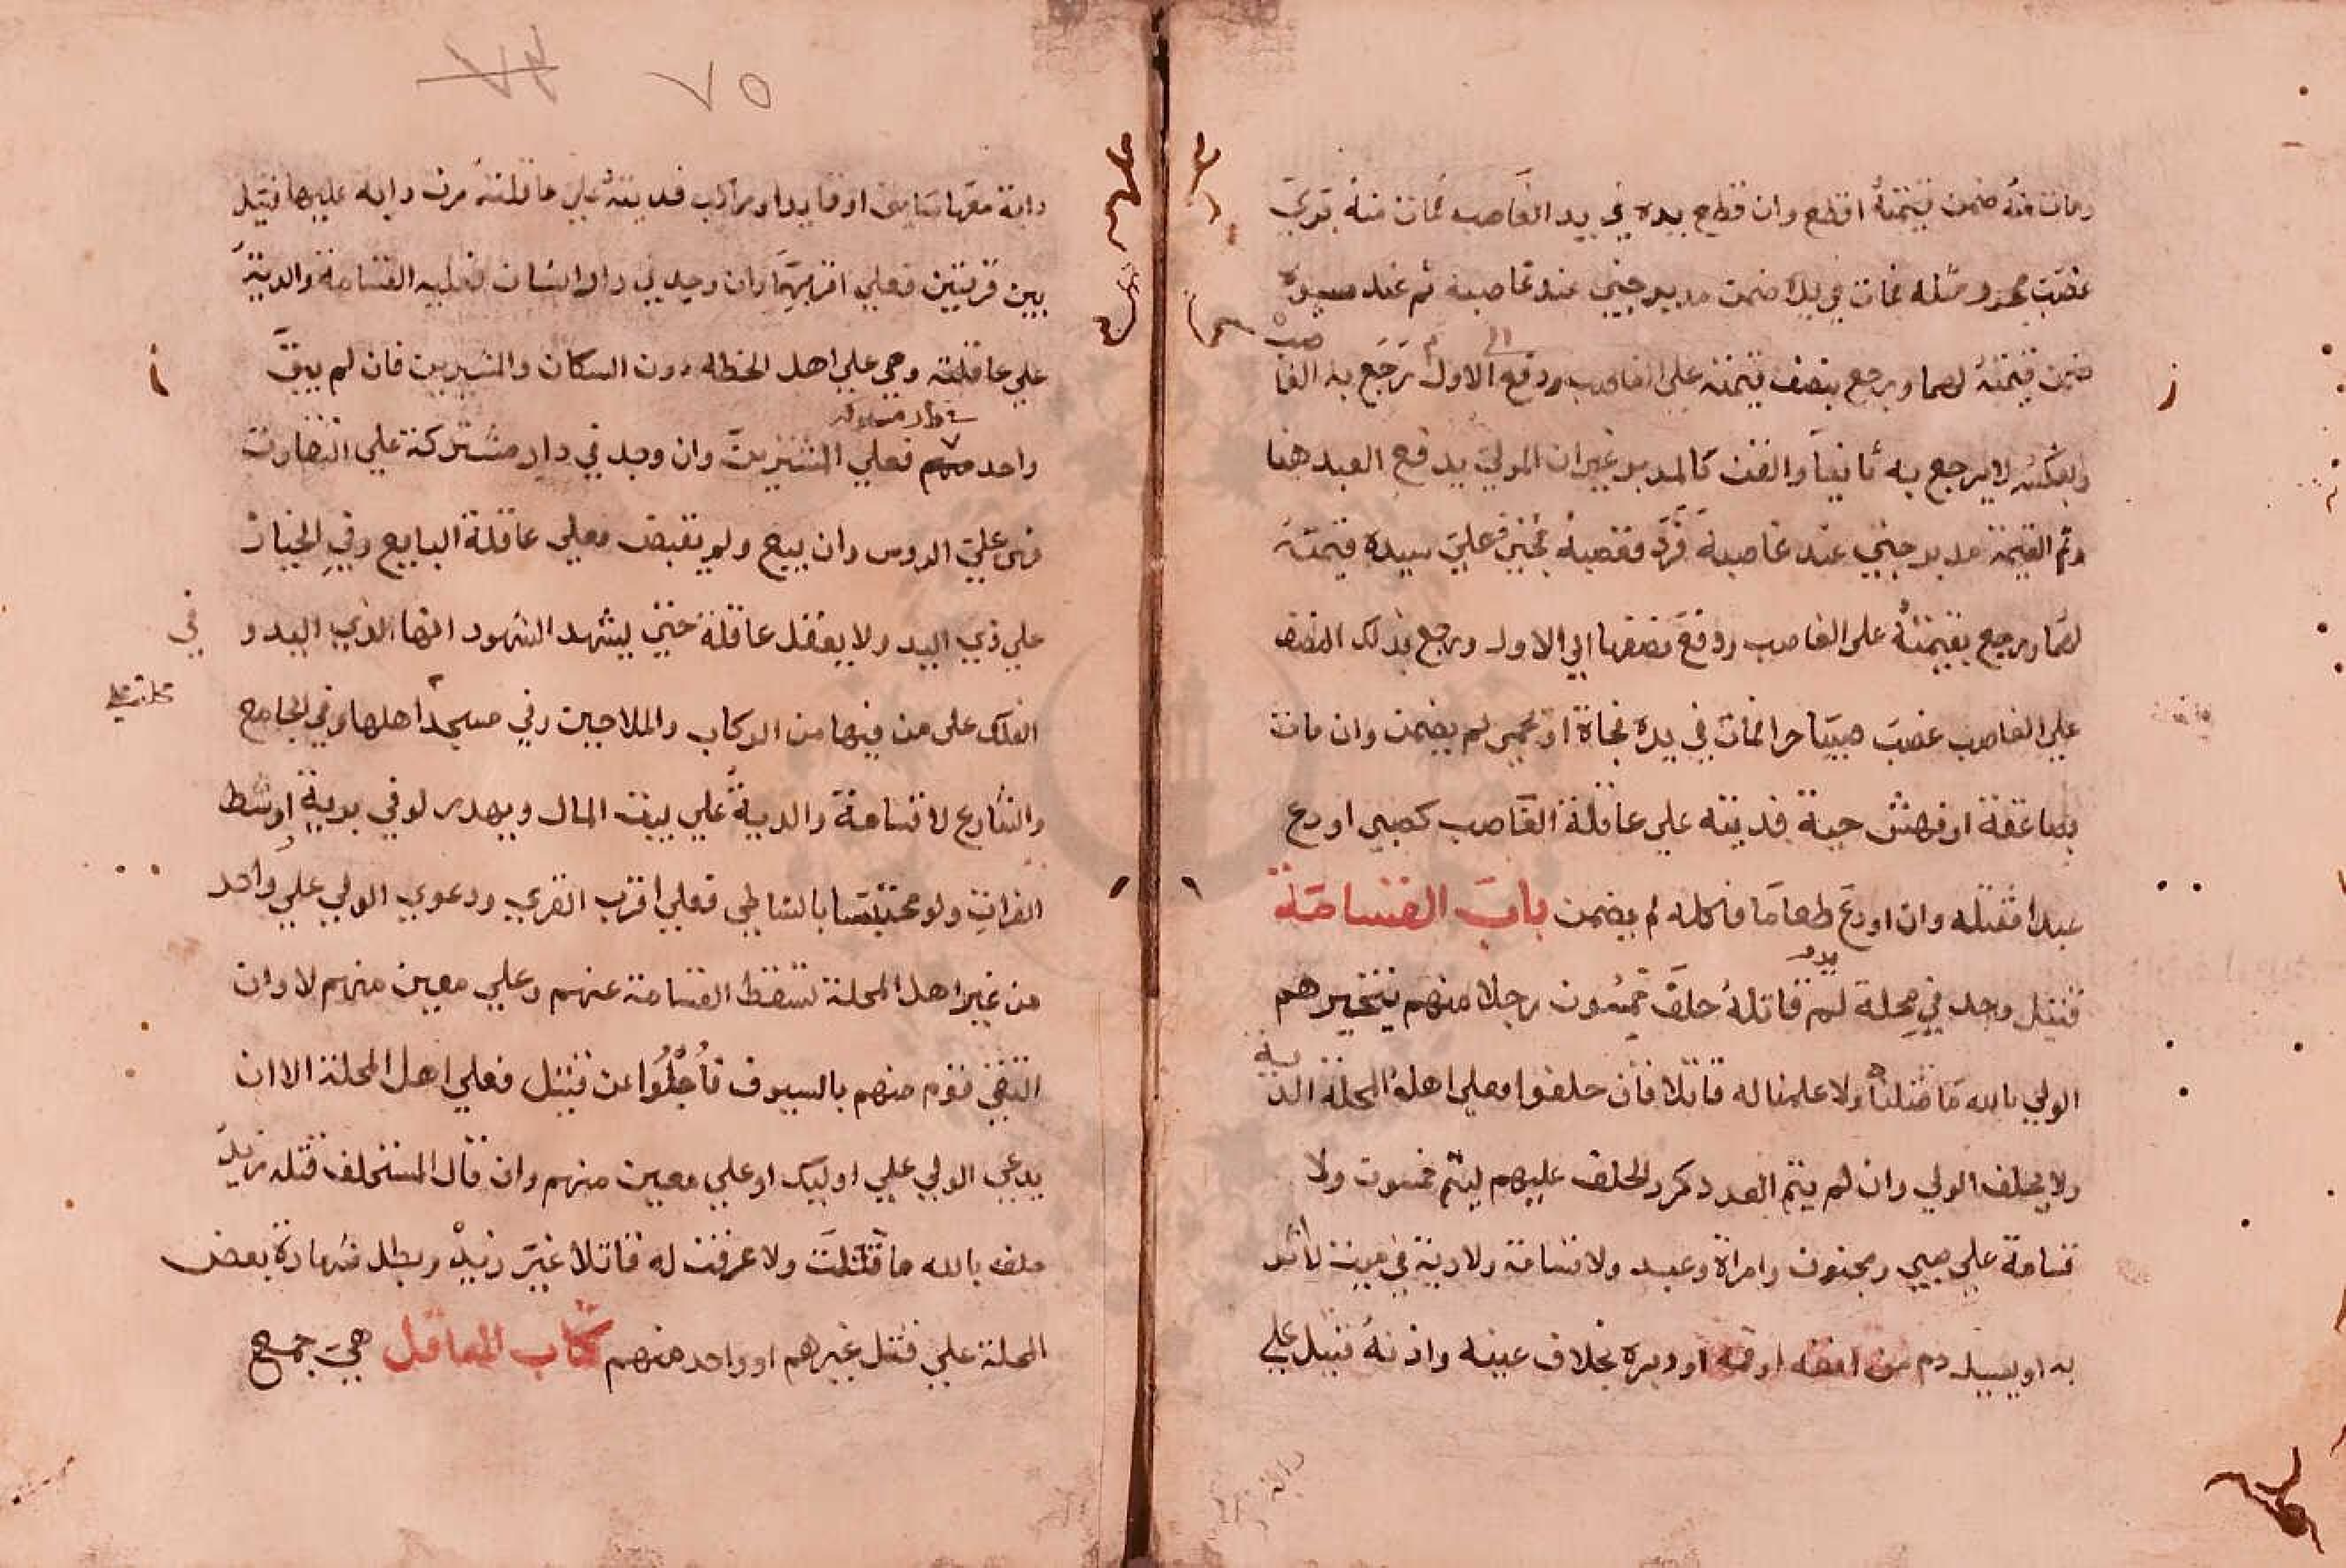 ومات منه ضمن قيمته اقطع وان قطع يده في يد الغاصب فمات منه بري
غصب محجور مثله فمات في يده ضمن مدبر جني عند غاصبه ثم عند سيده
ضمن قيمته لهما ورجع بنصف قيمته علي الغاصب ودفع الي الاول ثم رجع به الغا
صب
وبعكسه لا يرجع به ثانيا والقن كالمدبر غير ان المولي يدفع العبد هنا
وثم القيمة مدبر جني عند غاصبه فرد فغصبه فجني فعلي سيده قيمته
لهما ورجع بقيمته علي الغاصب ودفع نصفها الي الاول ورجع بذلك النصف
علي الغاصب غصب صبيا حرا فمات في يده فجاة او بحمي لم يضمن وان مات
بصاعقة او نهش حية فديته علي عاقلة الغاصب كصبي اودع
عبدا فقتله وان اودع طعاما فاكله لم يضمن باب القسامة
قتيل وجد في محلة لم يدر قاتله حلف خمسون رجلا منهم يتخيرهم
الولي بالله ما قتلناه ولا علمنا له قاتلا فان حلفوا فعلي اهل المحلة الد
ية
ولا يحلف الولي وان لم يتم العدد كرر الحلف عليهم ليتم خمسون ولا
قسامة علي صبي ومجنون وامراة وعبد ولا قسامة ولا دية في ميت لا اثر
به او يسيل دم من انفه او فمه او دبره بخلاف عينه واذنه قتيل علي
دابة
٧٥
دابة معها سايق او قايد او راكب فديته علي عاقلته مرت دابه عليها قتيل
بين قريتين فعلي اقربهما وان وجد في دار انسان فعليه القسامة والدية
علي عاقلته وهي علي اهل الخطه دون السكان والمشترين فان لم يبق
واحد منهم فعلي المشترين وان وجد في دار مشتركة علي التفاوت
فهي علي الروس وان بيع ولم يقبض فعلي عاقلة البايع وفي الخيار
علي ذي اليد ولا يعقل عاقلة حتي يشهد الشهود انها لذي اليد و
في
الفلك علي من فيها من الركاب والملاحين وفي مسجد اهلها وفي الجامع
والشارع لا قسامة والدية علي بيت المال ويهدر لو في برية او شط
الفرات ولو محتبسا بالشاطي فعلي اقرب القري ودعوي الولي علي واحد
من غير اهل المحلة تسقط القسامة عنهم وعلي معين منهم لا وان
التقي قوم منهم بالسيوف فاجلوا عن قتيل فعلي اهل المحلة الا ان
يدعي الولي علي اوليك او علي معين منهم وان قال المستحلف قتله زيد
حلف بالله ما قتلت ولا عرفت له قاتلا غير زيد وبطل شهادة بعض
المحلة علي قتل غيرهم او واحد منهم كتاب المعاقل هي جمع